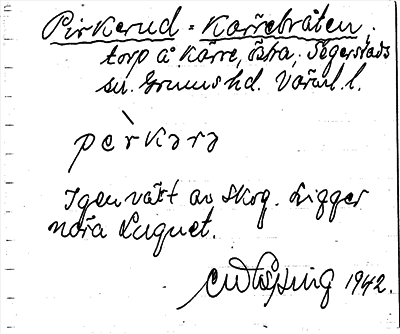 Pirkerud = Karrebråten.
torp å Kärre, östra, Segerstads
sn. Grums hd. Värml. l.
pèrkərə
Igenväxt av skog. Ligger
nära Luguet.
1942.